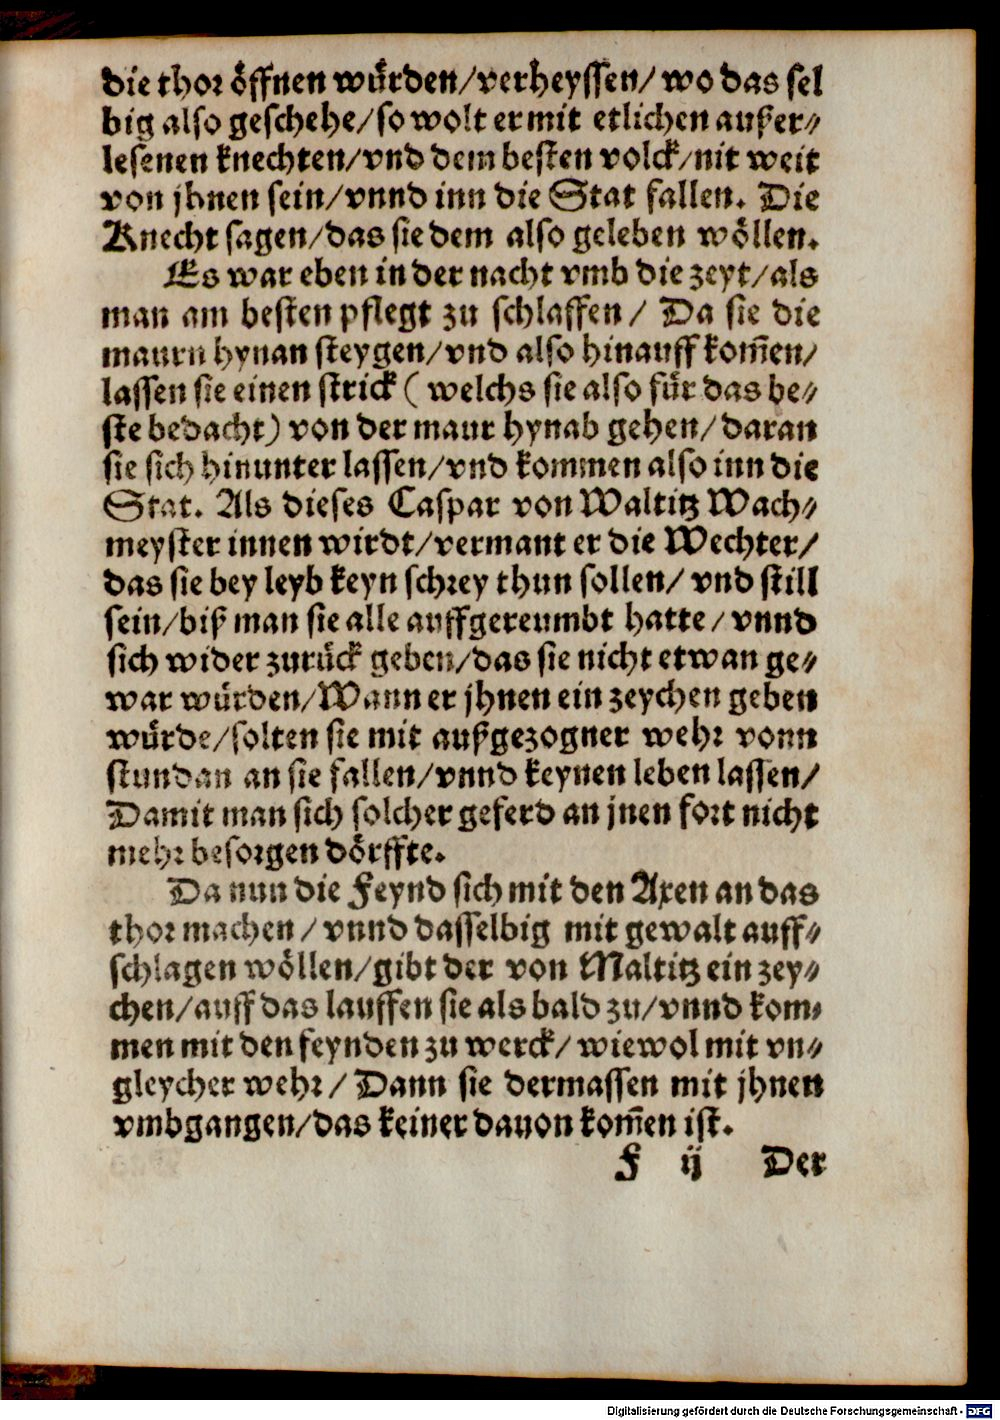 die thor öffnen würden/verheyssen/ wo das sel
big also geschehe/so wolt er mit etlichen außer⸗
lesenen knechten/vnd dem besten volck/nit weit
von jhnen sein/vnnd inn die Stat fallen. Die
Knecht sagen/das sie dem also geleben wöllen.
Es war eben in der nacht vmb die zeyt/als
man am besten pflegt zu schlaffen / Da sie die
maurn hynan steygen/vnd also hinauff kom̄en/
lassen sie einen strick ( welchs sie also für das be⸗
ste bedacht) von der maur hynab gehen/daran
sie sich hinunter lassen/vnd kommen also inn die
Stat. Als dieses Caspar von Maltitz Wach⸗
meyster innen wirdt/vermant er die Wechter/
das sie bey leyb keyn schrey thun sollen/ vnd still
sein/biß man sie alle auffgereumbt hatte/ vnnd
sich wider zurück geben/das sie nicht etwan ge⸗
war würden/Wann er jhnen ein zeychen geben
würde/solten sie mit außgezogner wehr vonn
stundan an sie fallen/vnnd keynen leben lassen/
Damit man sich solcher geferd an jnen fort nicht
mehr besorgen dörffte.
Da nun die Feynd sich mit den Axen an das
thor machen / vnnd dasselbig mit gewalt auff⸗
schlagen wöllen/gibt der von Maltitz ein zey⸗
chen/auff das lauffen sie als bald zu/vnnd kom⸗
men mit den feynden zu werck/ wiewol mit vn⸗
gleycher wehr/ Dann sie dermassen mit jhnen
vmbgangen/das keiner dauon kom̄en ist.
F ij Der
Digitalisierung gefördert durch die Deutsche Forschungsgemeinschaft - DFG